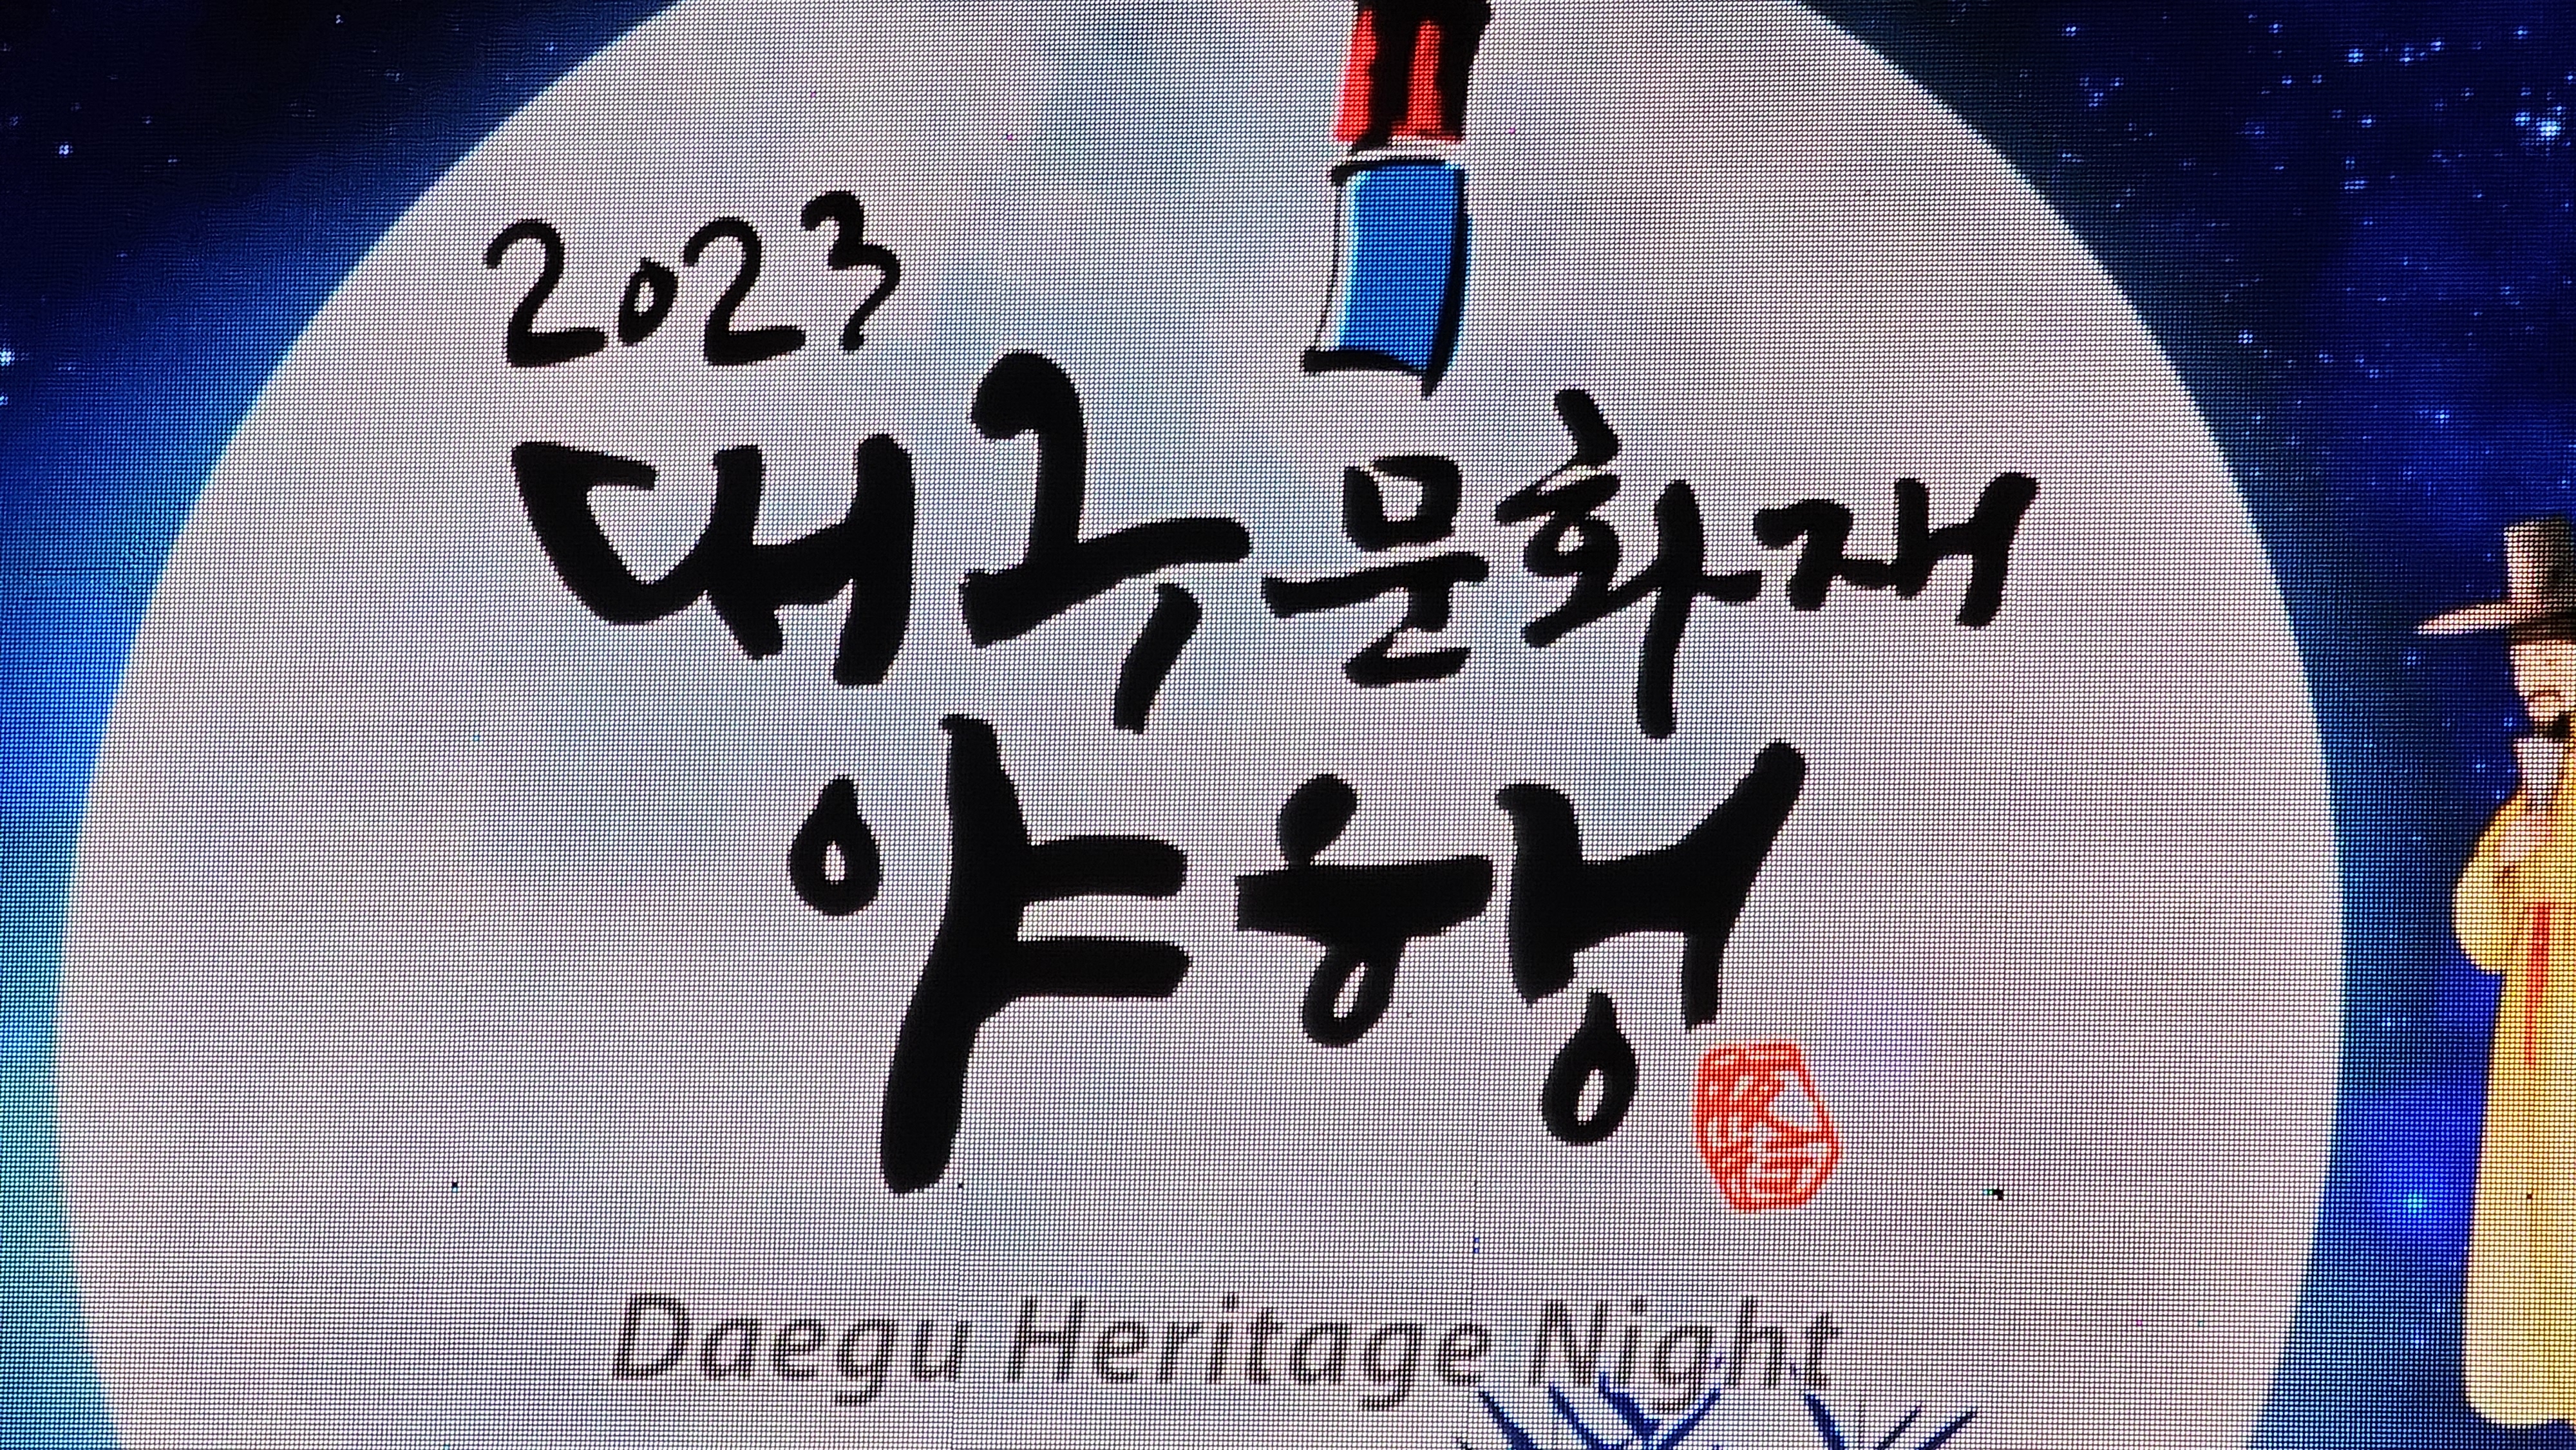 2023
대구 문화재
야행
Daegu Heritage Night